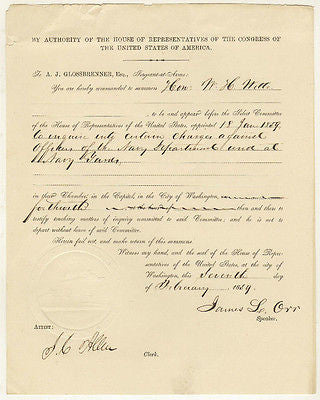 BY AUTHORITY OF THE HOUSE OF REPRESENTATIVES OF THE CONGRESS OF
THE UNITED STATES OF AMERICA.
To A. J. GLOSSBRENNER, Esq., Sergeant-at-Arms:
You are hereby commanded to summon Hon. W. H. Witte
, to be and appear before the Select Committee
of the House of Representatives of the United States, appointed 18 Jan 1859,
to enquire into certain charges against
Officers of the Navy Department and at
Navy Yards,
in their Chamber, in the Capitol, in the City of Washington,
forthwith then and there to
testify touching matters of inquiry committed to said Committee; and he is not to
depart without leave of said Committee.
Herein fail not, and make return of this summons.
Witness my hand, and the seal of the House of Repre-
sentatives of the United States, at the city of
Washington, this Seventh day
of February 1859.
James L. Orr
Speaker.
ATTEST:
J. C. Allen
Clerk.